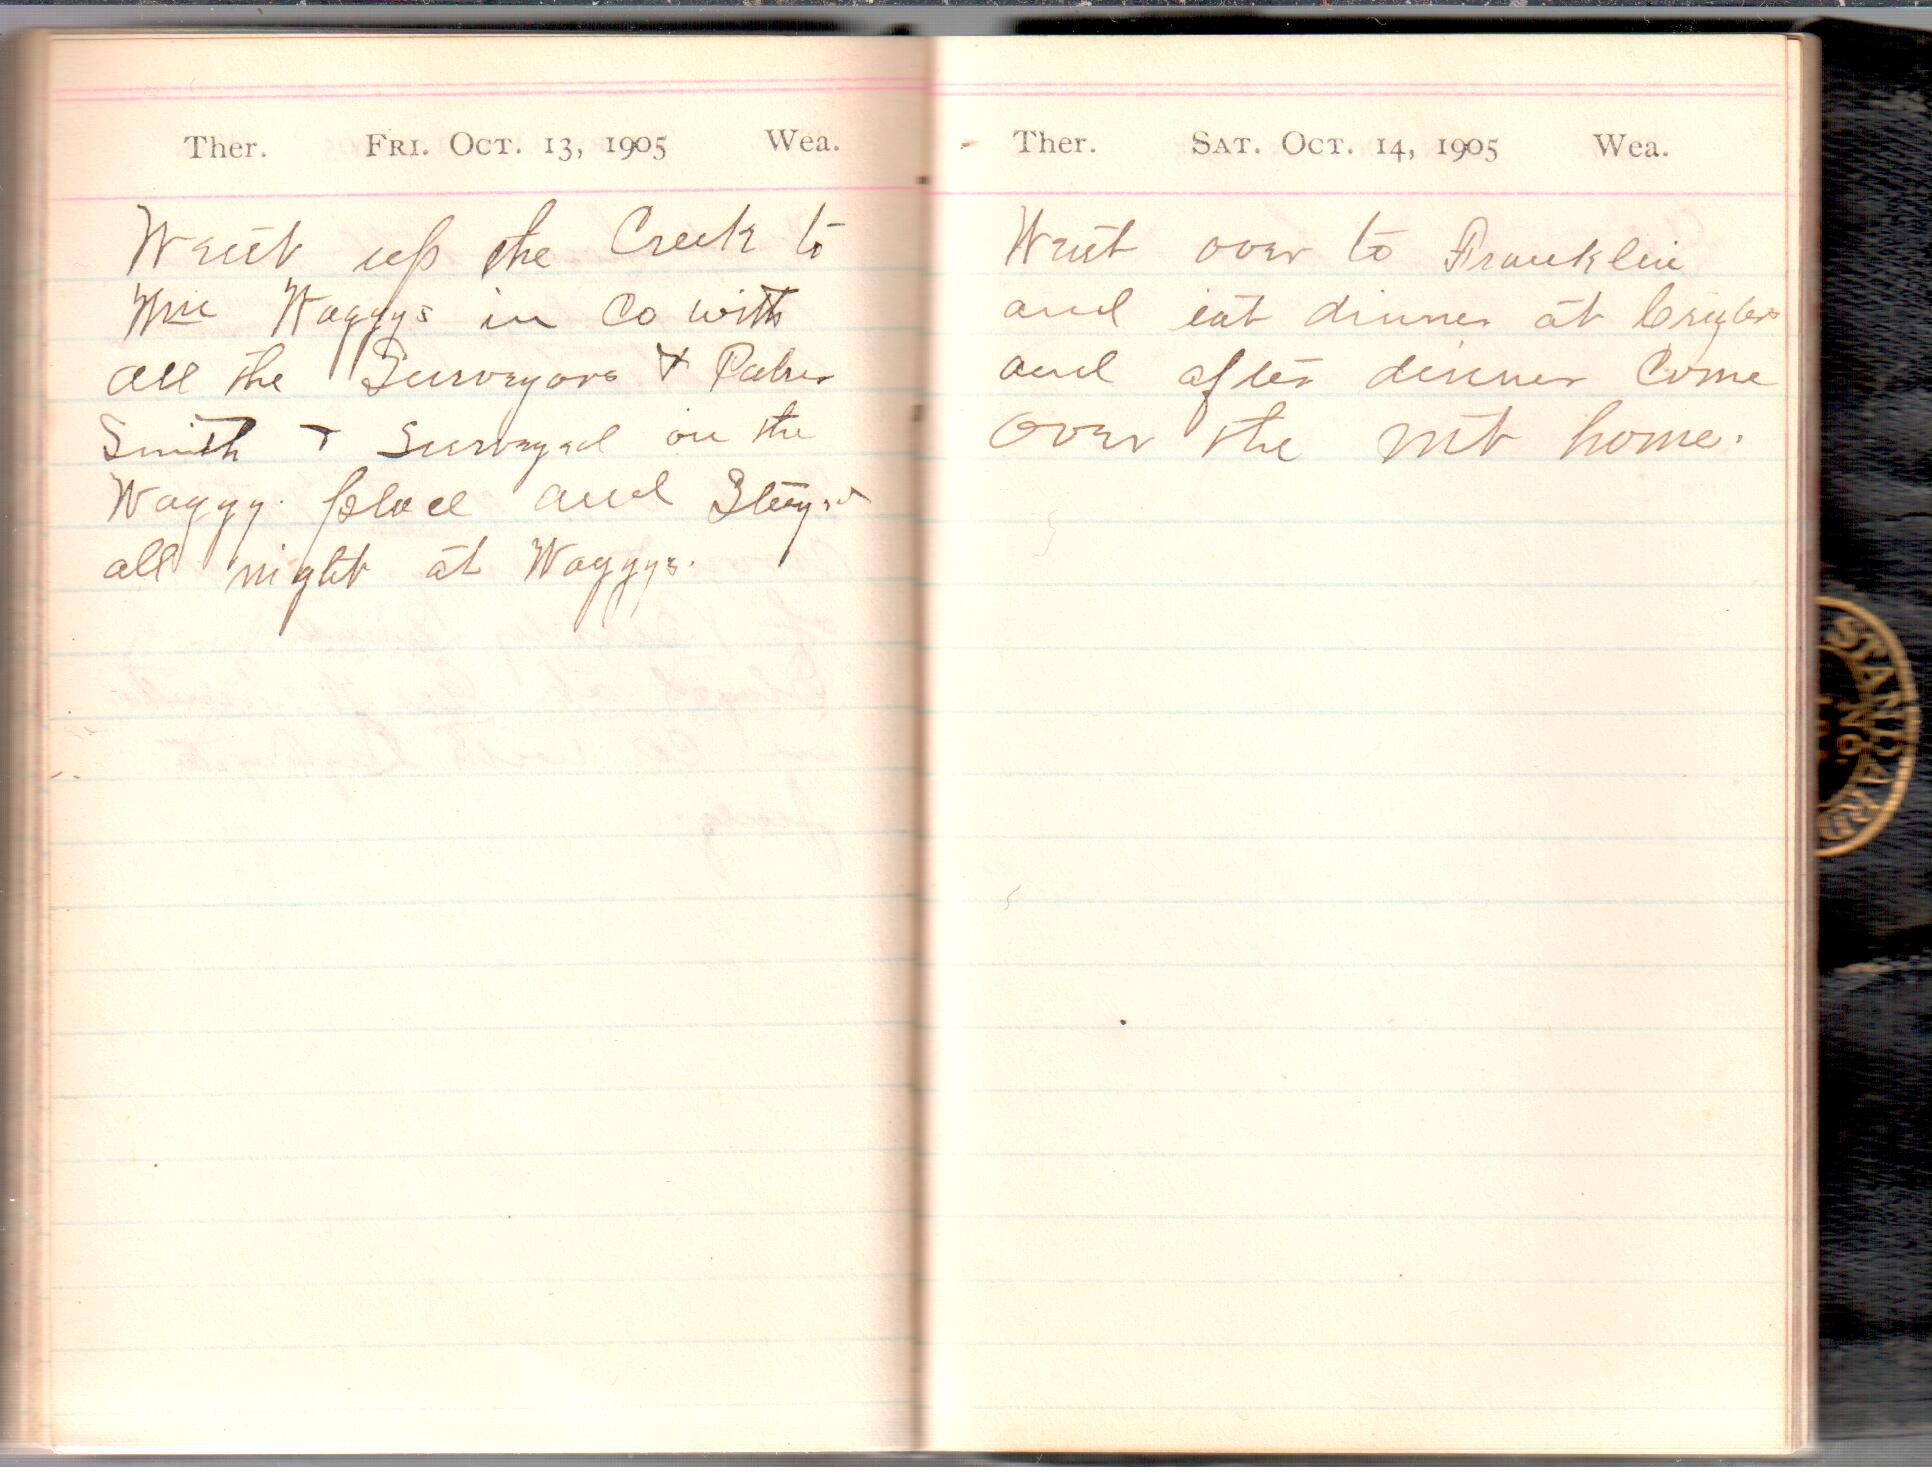 Ther. FRI. OCT. 13, 1905 Wea.
Went up the Creek to
Wm Waggys in Co with
all the Surveyors &
Smith & Surveyed on the
Waggy place and Stayed
all night at Waggys.
Ther. SAT. OCT. 14, 1905 Wea.
Went over to Franklin
and eat dinner at
and after dinner Come
over the mt home.
STANDARD
NO.